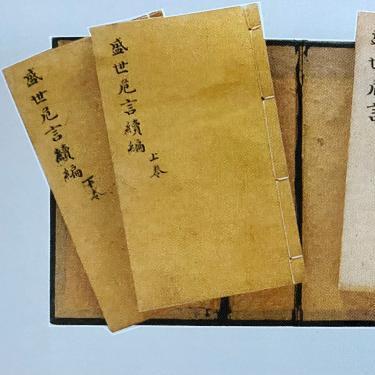 盛世危言續編
下卷
盛世危言續編
上卷
盛世危言